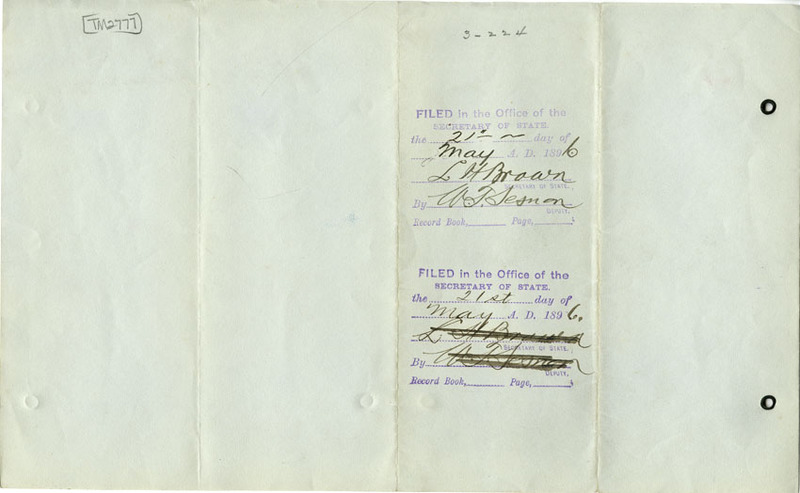 TM2777
3-224
FILED in the Office of the
SECRETARY OF STATE.
the 21st day of
May A. D. 1896
L H Brown
SECRETARY OF STATE.
By W. T.
DEPUTY.
Record Book, Page,
FILED in the Office of the
SECRETARY OF STATE.
the 21st day of
May A. D. 1896.
L. H Brown
SECRETARY OF STATE.
By W. T.
DEPUTY.
Record Book, Page,